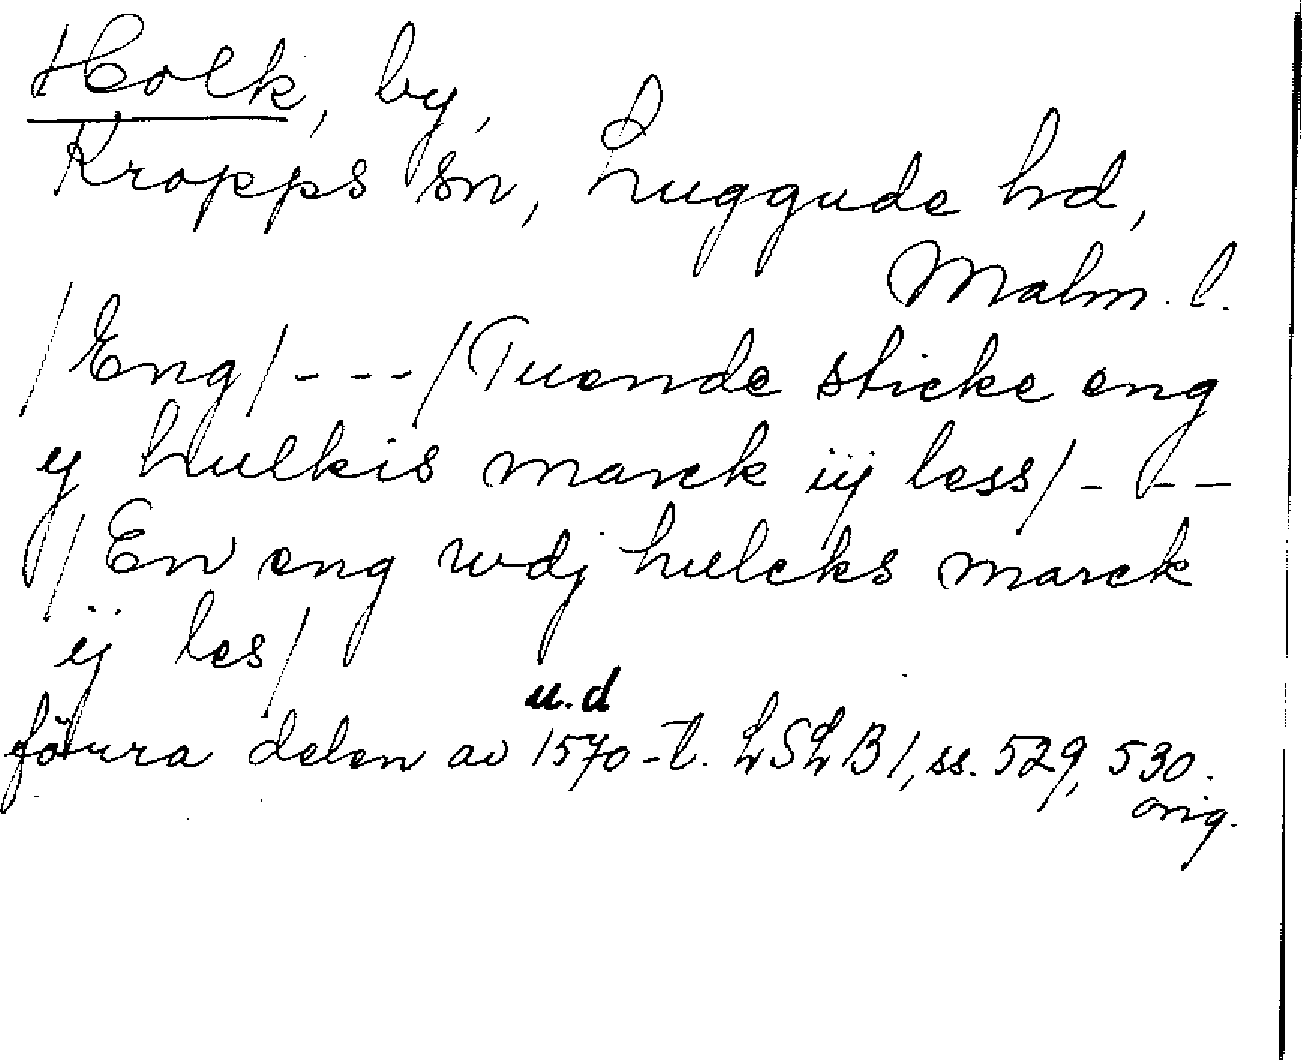 Holk, by,
Kropps sn, Luggude hd,
Malm. l.
/Eng/---/Tuende sticke eng
y hulkis marck iij less/---
/En eng wdj hulcks marck
ij les/
u.d
förra delen av 1570-t. LSLB 1, ss. 529, 530.
orig.